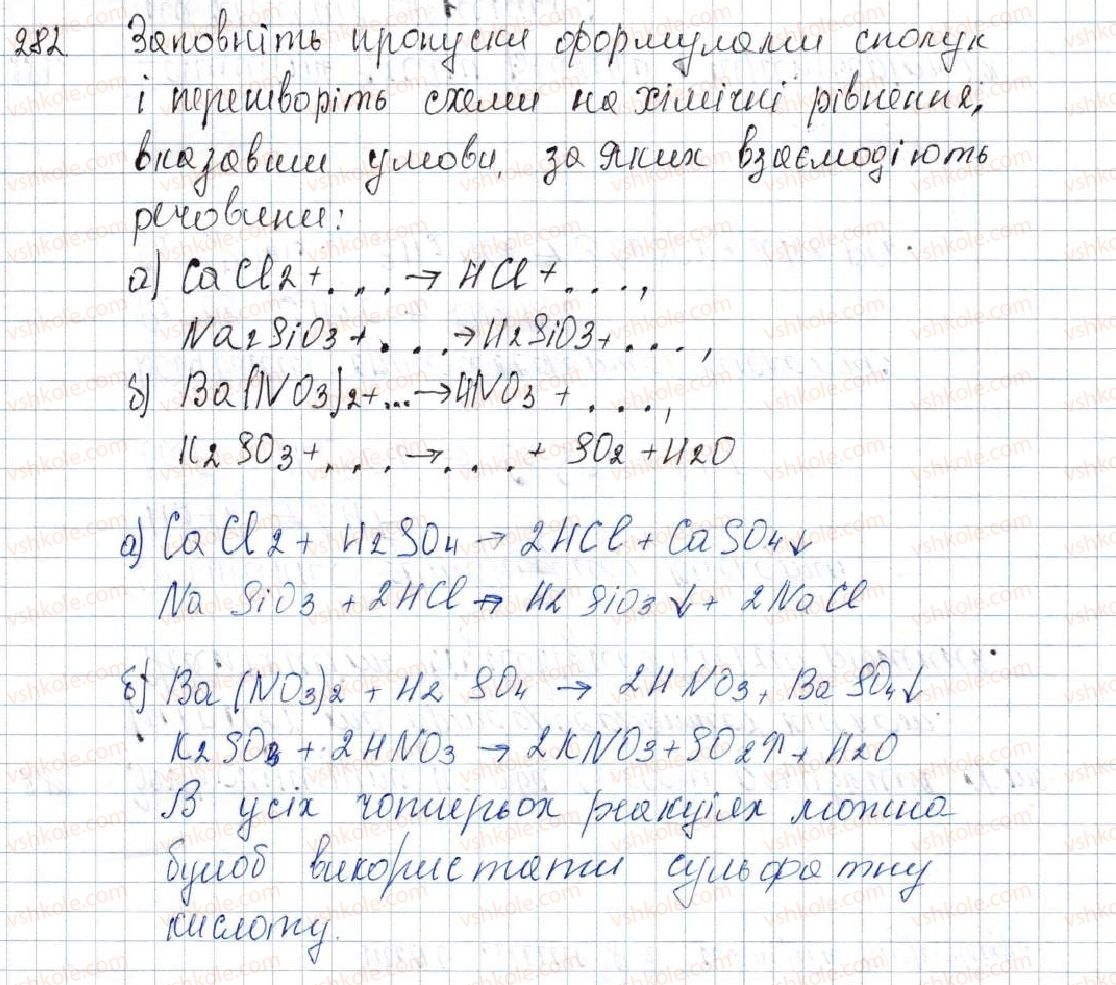 282 Заповніть пропуски формулами сполук
і перетворіть схеми на хімічні рівнення,
вказавши умови, за яких взаємодіють
речовини:
а) CaCl2 + . . . . → HCl + . . . .,
Na2SiO3 + . . . . → H2SiO3 + . . . .,
б) Ba(NO3)2 + ... → HNO3 + . . . .,
K2SO3 + . . . . → . . . . + SO2 + H2O
а) CaCl2 + H2SO4 → 2HCl + CaSO4↓
Na SiO3 + 2HCl → H2SiO3↓ + 2NaCl
б) Ba(NO3)2 + H2SO4 → 2HNO3 + BaSO4↓
K2SO3 + 2HNO3 → 2KNO3 + SO2↑ + H2O
В усіх чотирьох реакціях можна
булоб використати сульфатну
кислоту.